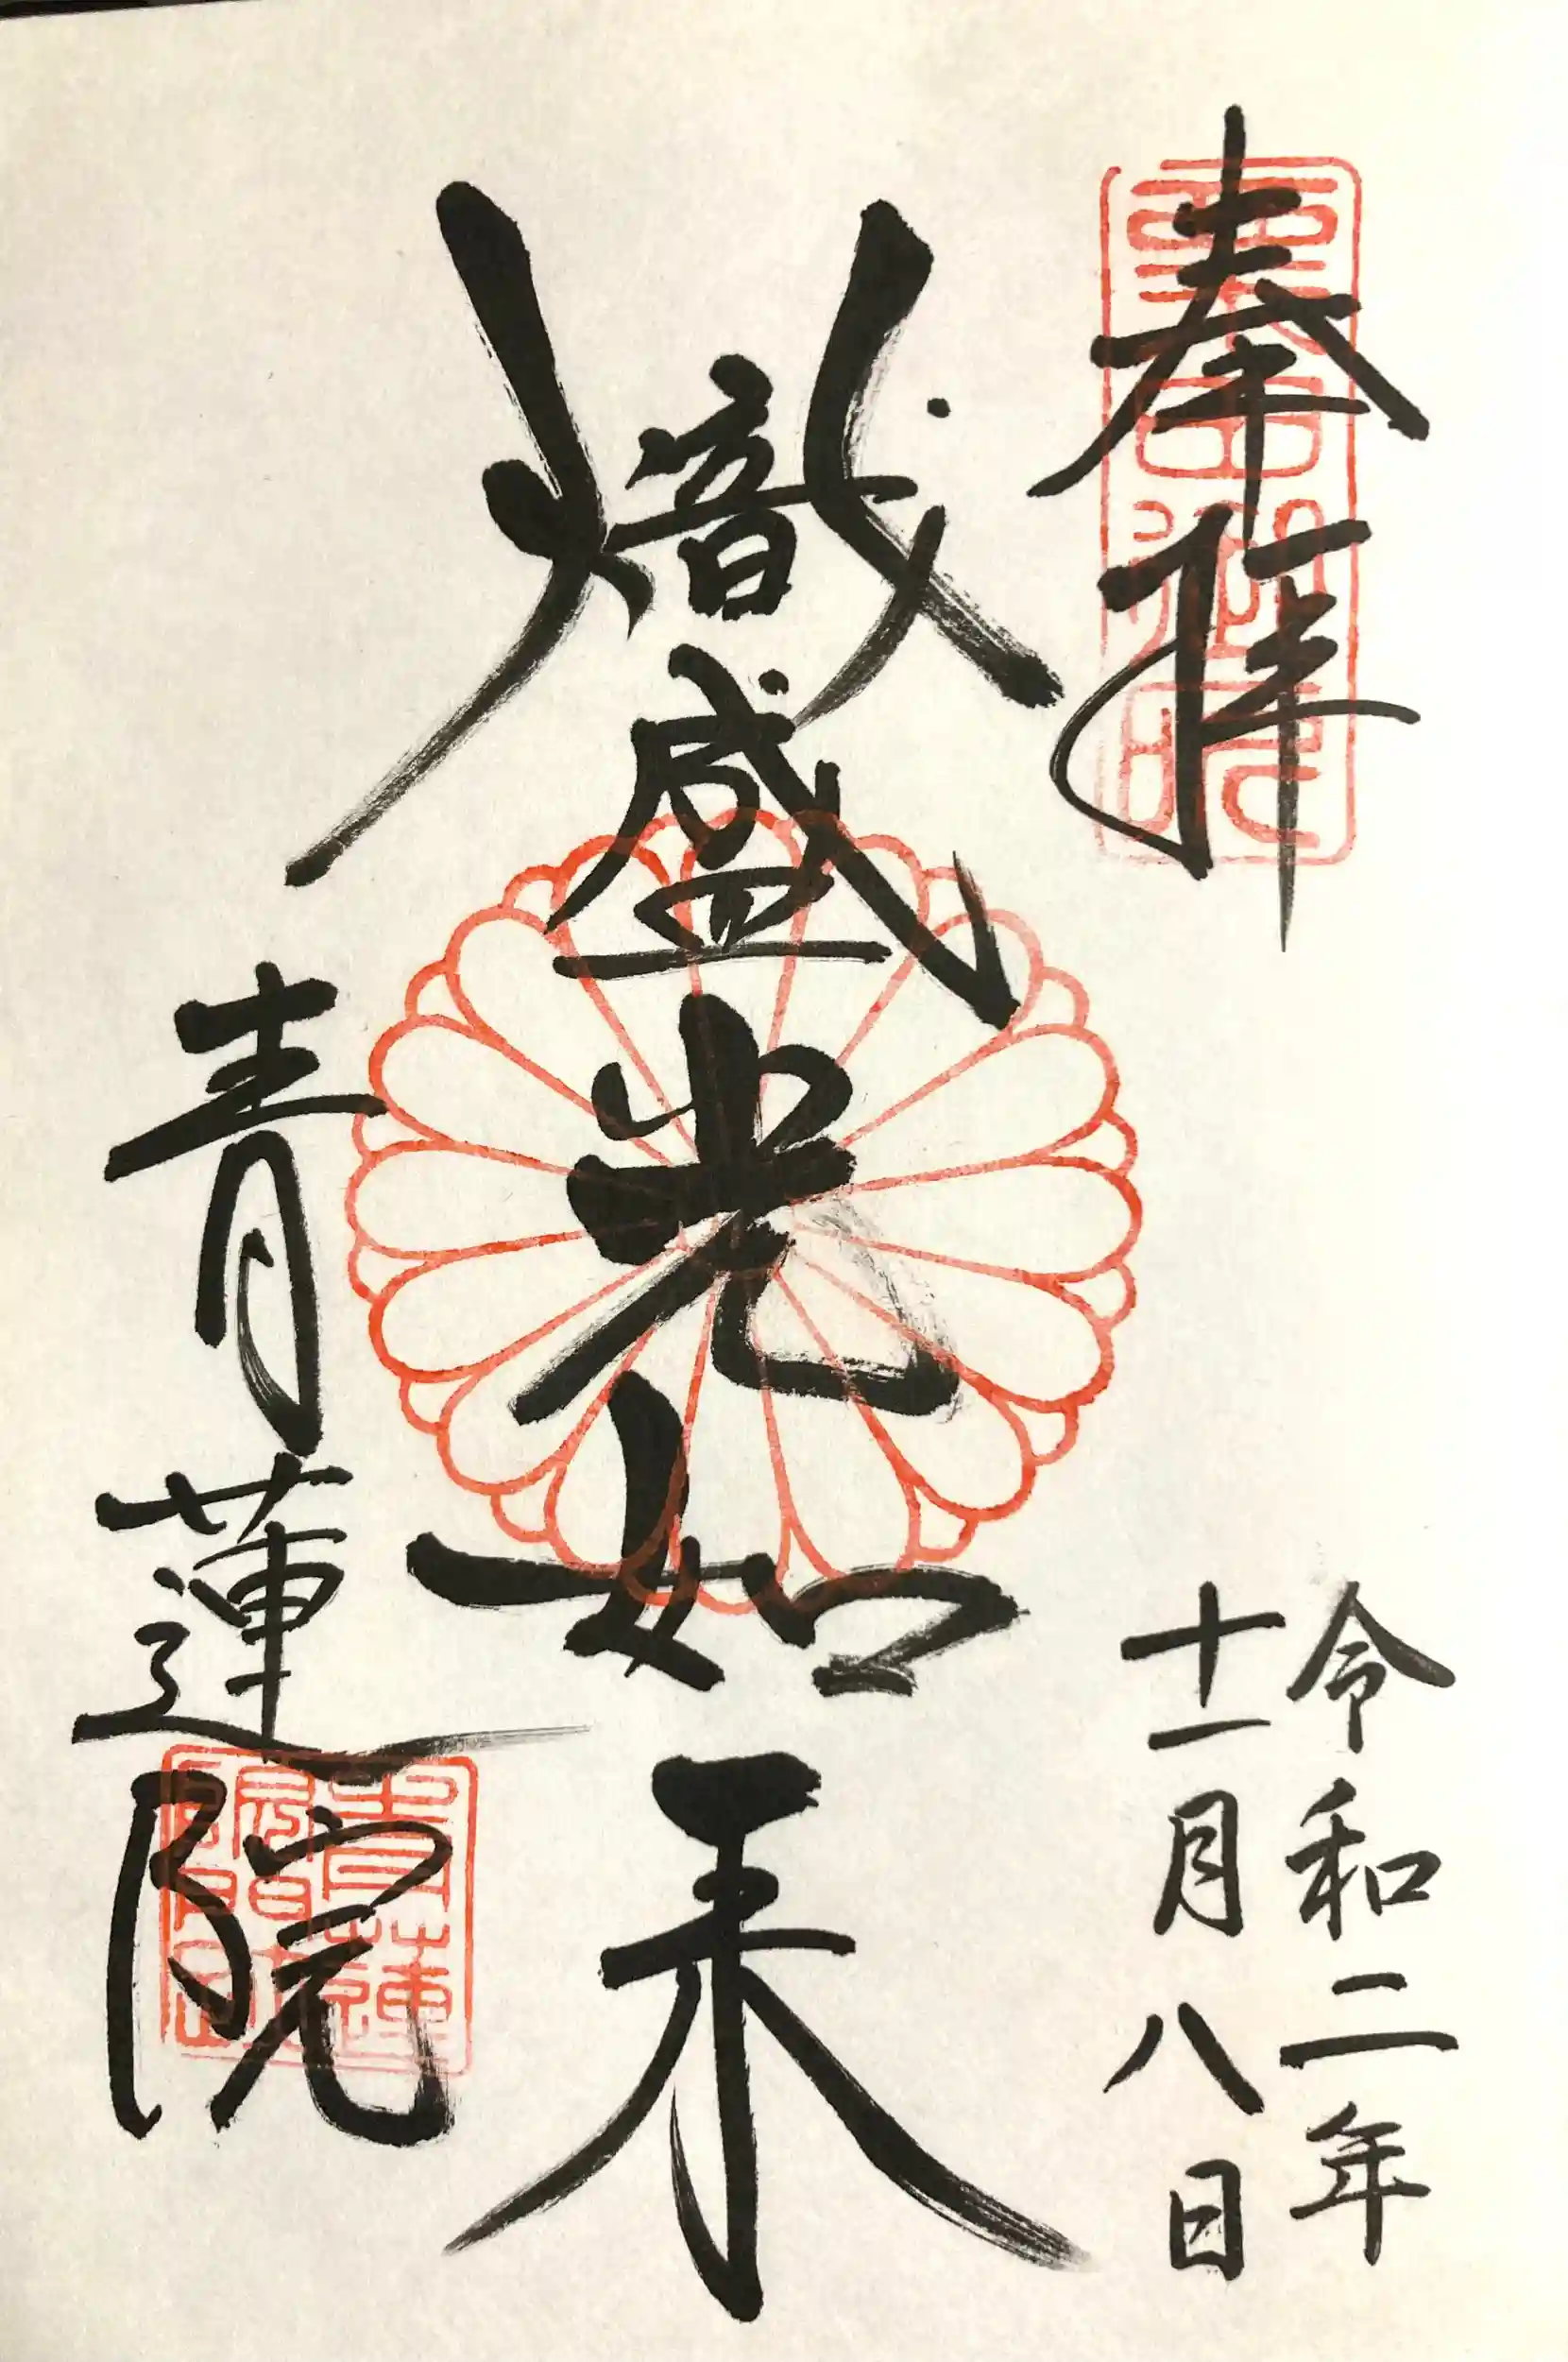 奉拝
令和二年
十一月八日
熾盛光如来
青蓮院